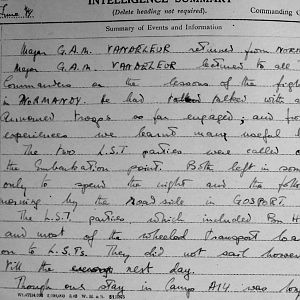 INTELLIGENCE SUMMARY
(Delete heading not required).
Commanding O
Summary of Events and Information
Major G.A.M. VANDELEUR returned from NORM
Major G.A.M. VANDELEUR lectured to all
Commanders on the lessons of the figh
in NORMANDY. He had talked with
Armoured troops so far engaged; and fro
experiences we learnt many useful l
The two L.S.T. parties were called
the Embarkation point. Both left in
only to spend the night and the foll
morning by the road side in GOSPORT.
The L.S.T. parties which included Bn H
and most of the wheeled transport loa
on to L.S.Ts. They did not sail howev
till the next day.
Though our stay in Camp A14 was long